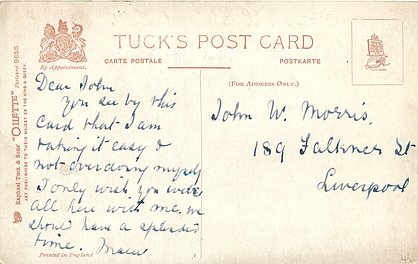 TUCK'S POST CARD
CARTE POSTALE
POSTKARTE
By Appointment.
(FOR ADDRESS ONLY.)
Dear John
You see by this
Card that I am
taking it easy &
not overdoing myself
I only wish you were
all here with me. we
should have a splendid
time.
John W. Morris,
189 Falkner St
Liverpool
Raphael Tuck & Sons' "OILETTE" Postcard 9655
ART PUBLISHERS TO THEIR MAJESTIES THE KING & QUEEN.
Printed in England